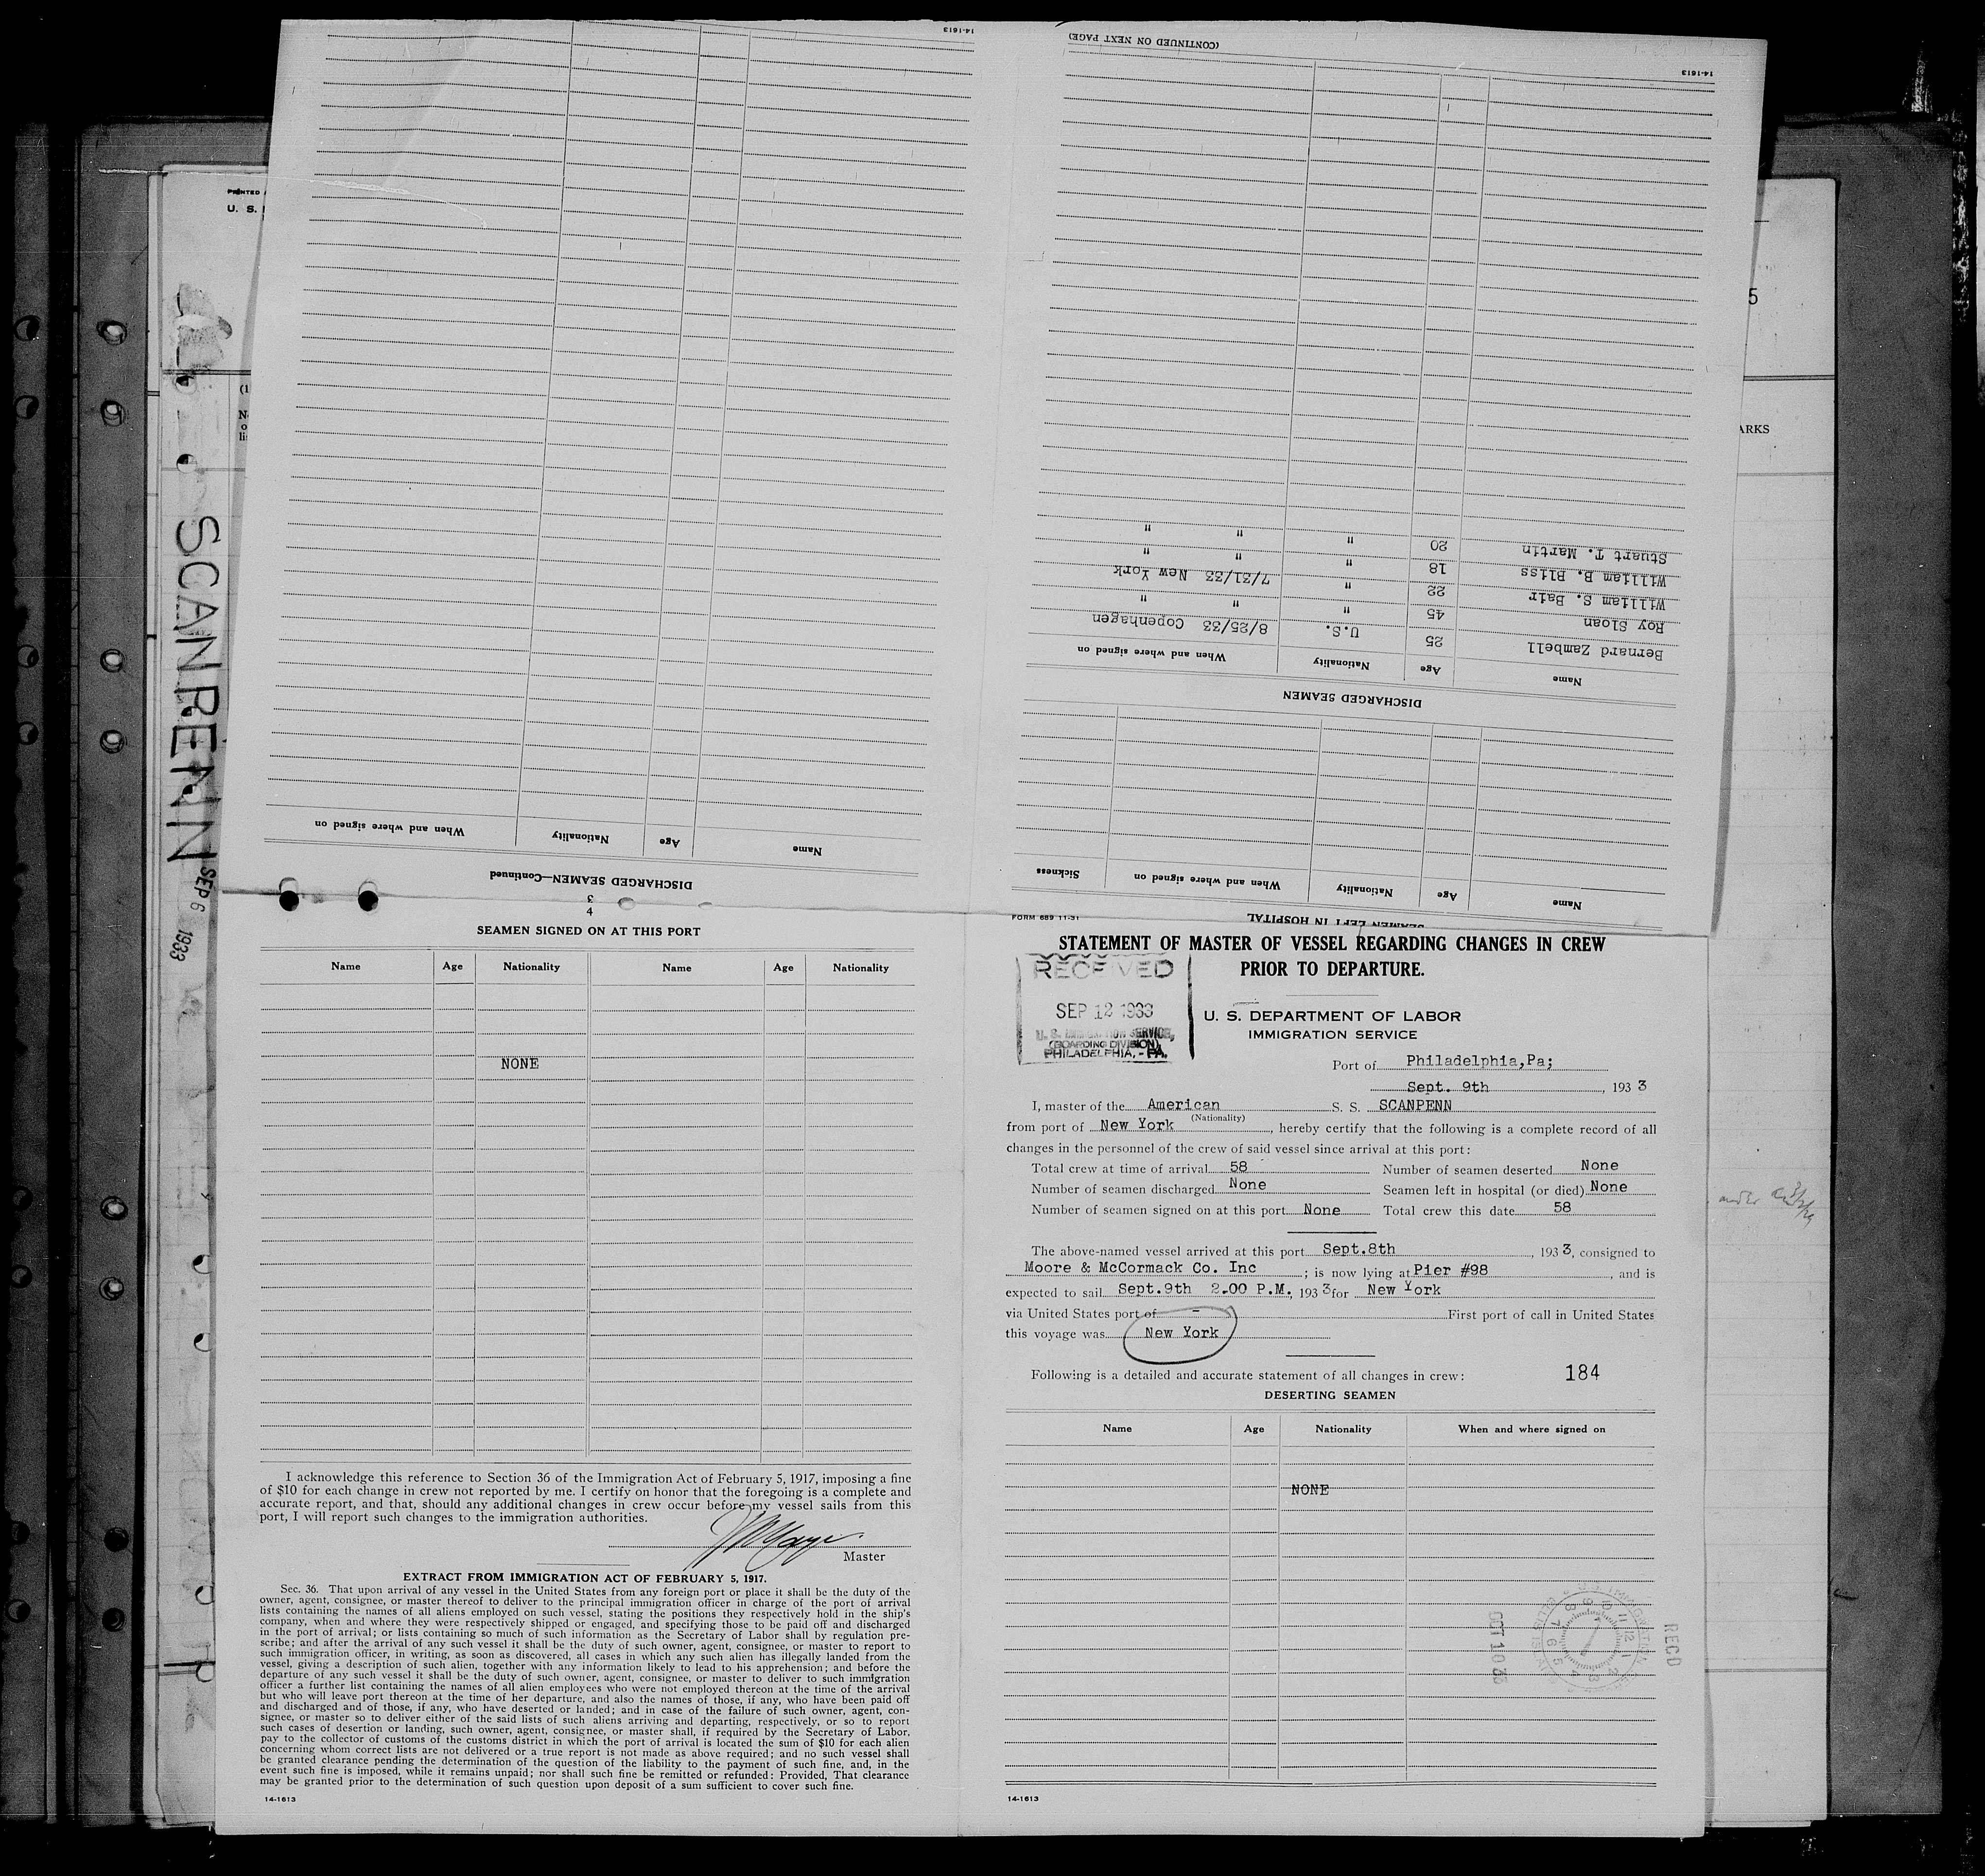 PRINTED
U. S.
(1
N
o
li
SCANRENN
SEP 6 1933
5
ARKS
14-1613
DISCHARGED SEAMEN—Continued
Name Age Nationality When and where signed on
3
SEAMEN LEFT IN HOSPITAL
Name Age Nationality When and where signed on Sickness
DISCHARGED SEAMEN
Name Age Nationality When and where signed on
Bernard Zambell 25 U.S. 8/25/33 Copenhagen
Roy Sloan 45 " " "
William S. Bair 22 " 7/31/33 New York
William B. Bliss 18 " " "
Stuart T. Martin 20 " " "
(CONTINUED ON NEXT PAGE)
14-1613
4
SEAMEN SIGNED ON AT THIS PORT
Name Age Nationality Name Age Nationality
NONE
I acknowledge this reference to Section 36 of the Immigration Act of February 5, 1917, imposing a fine
of $10 for each change in crew not reported by me. I certify on honor that the foregoing is a complete and
accurate report, and that, should any additional changes in crew occur before my vessel sails from this
port, I will report such changes to the immigration authorities.
Master
EXTRACT FROM IMMIGRATION ACT OF FEBRUARY 5, 1917.
Sec. 36. That upon arrival of any vessel in the United States from any foreign port or place it shall be the duty of the
owner, agent, consignee, or master thereof to deliver to the principal immigration officer in charge of the port of arrival
lists containing the names of all aliens employed on such vessel, stating the positions they respectively hold in the ship's
company, when and where they were respectively shipped or engaged, and specifying those to be paid off and discharged
in the port of arrival; or lists containing so much of such information as the Secretary of Labor shall by regulation pre-
scribe; and after the arrival of any such vessel it shall be the duty of such owner, agent, consignee, or master to report to
such immigration officer, in writing, as soon as discovered, all cases in which any such alien has illegally landed from the
vessel, giving a description of such alien, together with any information likely to lead to his apprehension; and before the
departure of any such vessel it shall be the duty of such owner, agent, consignee, or master to deliver to such immigration
officer a further list containing the names of all alien employees who were not employed thereon at the time of the arrival
but who will leave port thereon at the time of her departure, and also the names of those, if any, who have been paid off
and discharged and of those, if any, who have deserted or landed; and in case of the failure of such owner, agent, con-
signee, or master so to deliver either of the said lists of such aliens arriving and departing, respectively, or so to report
such cases of desertion or landing, such owner, agent, consignee, or master shall, if required by the Secretary of Labor,
pay to the collector of customs of the customs district in which the port of arrival is located the sum of $10 for each alien
concerning whom correct lists are not delivered or a true report is not made as above required; and no such vessel shall
be granted clearance pending the determination of the question of the liability to the payment of such fine, and, in the
event such fine is imposed, while it remains unpaid; nor shall such fine be remitted or refunded: Provided, That clearance
may be granted prior to the determination of such question upon deposit of a sum sufficient to cover such fine.
14-1613
FORM 689 11-31
STATEMENT OF MASTER OF VESSEL REGARDING CHANGES IN CREW
PRIOR TO DEPARTURE.
RECEIVED
SEP 12 1933
U. S. IMMIGRATION SERVICE,
(BOARDING DIVISION)
PHILADELPHIA, - PA.
U. S. DEPARTMENT OF LABOR
IMMIGRATION SERVICE
Port of Philadelphia,Pa;
Sept. 9th, 1933
I, master of the American S. S. SCANPENN
(Nationality)
from port of New York, hereby certify that the following is a complete record of all
changes in the personnel of the crew of said vessel since arrival at this port:
Total crew at time of arrival 58 Number of seamen deserted None
Number of seamen discharged None Seamen left in hospital (or died) None
Number of seamen signed on at this port None Total crew this date 58
The above-named vessel arrived at this port Sept.8th, 1933, consigned to
Moore & McCormack Co. Inc; is now lying at Pier #98, and is
expected to sail Sept.9th 2.00 P.M. 1933 for New York
via United States port of - First port of call in United States
this voyage was New York
Following is a detailed and accurate statement of all changes in crew: 184
DESERTING SEAMEN
Name Age Nationality When and where signed on
NONE
REC'D
OCT 10 33
14-1613